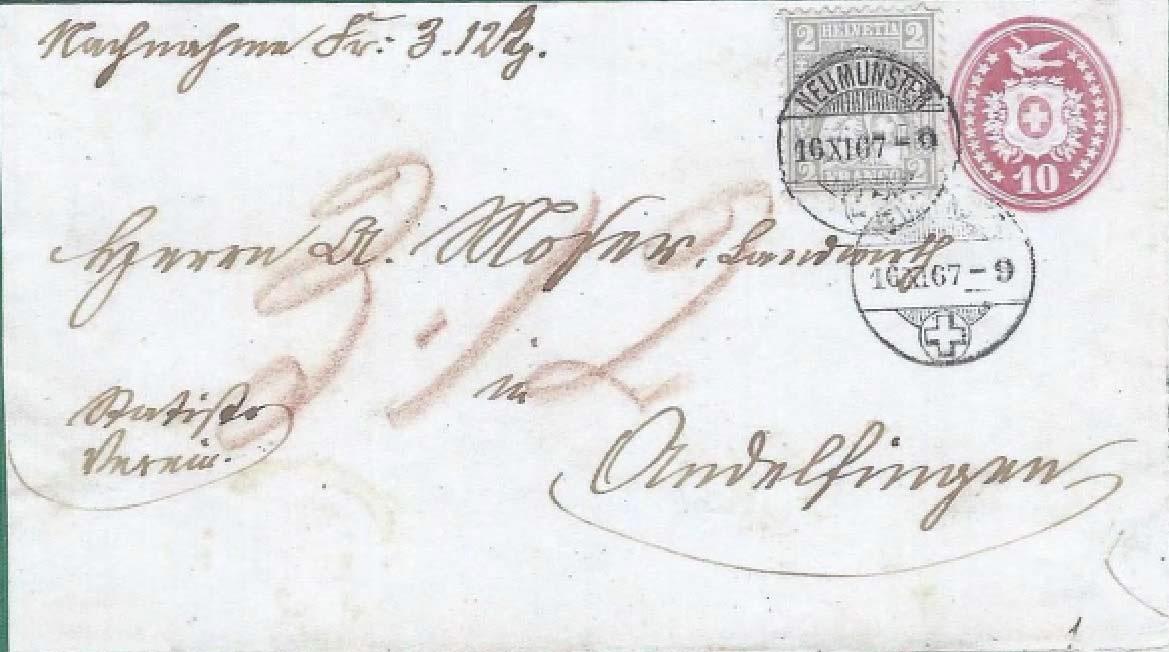 Nachnahme Fr: 3.12
2 HELVETIA 2
NEUMÜNSTER
16 XI 67 - 9
2 FRANCO 2
10
Herrn A. Moser, Landwirth
16 XI 67 - 9
3.12
in
Statist.
Verein.
Andelfingen
1